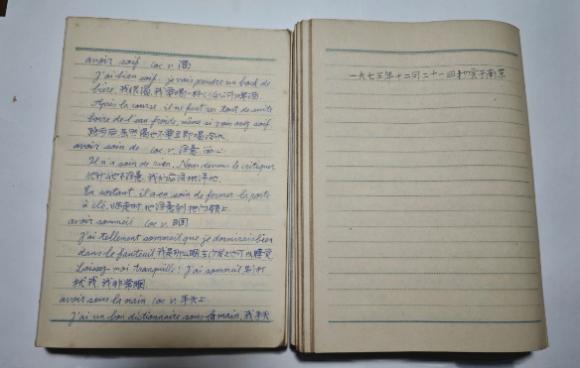 avoir soif loc.v. 渴
J'ai bien soif, je vais prendre un bock de
bière. 我很渴, 我要喝一杯
Après la course, il ne faut pas tout de suite
boire de l'eau froide, même si vous avez soif.
跑步后虽然渴也不要立即喝冷水
avoir soin de loc.v. 注意
Il n'a soin de rien. Nous devons le critiquer
他什么也不注意, 我们应该批评他.
En sortant, il a eu soin de fermer la porte
à clé. 出去时, 他注意到把门锁上
avoir sommeil loc.v. 困
J'ai tellement sommeil que je dormirais bien
dans le fauteuil 我是那么困在沙发上也可以睡觉
Laissez-moi tranquille! J'ai sommeil 别打
扰我, 我非常困
avoir sous la main loc.v. 手头上
J'ai un bon dictionnaire sous la main, 我手头
一九七三年十二月二十一日 于南京